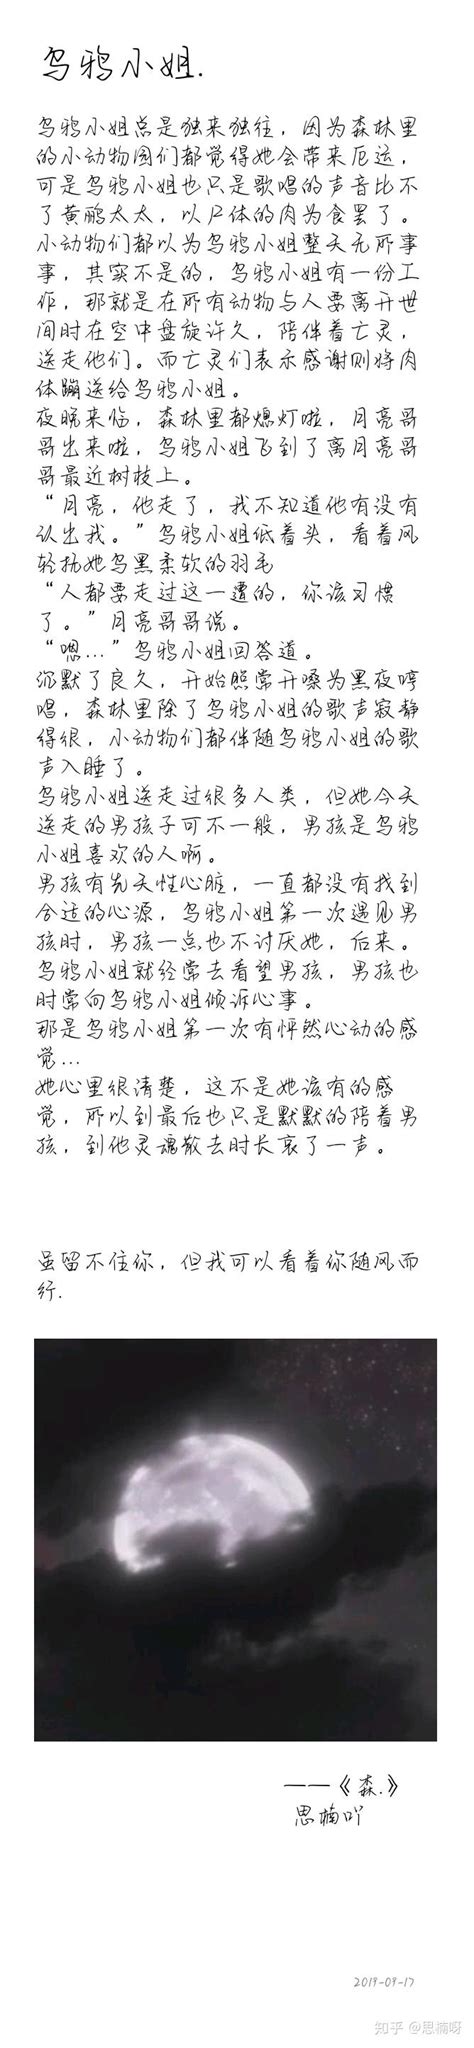 乌鸦小姐.
乌鸦小姐总是独来独往，因为森林里
的小动物团们都觉得她会带来厄运，
可是乌鸦小姐也只是歌唱的声音比不
了黄鹂太太，以尸体的肉为食罢了。
小动物们都以为乌鸦小姐整天无所事
事，其实不是的，乌鸦小姐有一份工
作，那就是在所有动物与人要离开世
间时在空中盘旋许久，陪伴着亡灵，
送走他们。而亡灵们表示感谢则将肉
体蹦送给乌鸦小姐。
夜晚来临，森林里都熄灯啦，月亮哥
哥出来啦，乌鸦小姐飞到了离月亮哥
哥最近树枝上。
“月亮，他走了，我不知道他有没有
认出我。”乌鸦小姐低着头，看着风
轻扬她乌黑柔软的羽毛
“人都要走过这一遭的，你该习惯
了。”月亮哥哥说。
“嗯...”乌鸦小姐回答道。
沉默了良久，开始照常开嗓为黑夜哼
唱，森林里除了乌鸦小姐的歌声寂静
得很，小动物们都伴随乌鸦小姐的歌
声入睡了。
乌鸦小姐送走过很多人类，但她今天
送走的男孩子可不一般，男孩是乌鸦
小姐喜欢的人啊。
男孩有先天性心脏，一直都没有找到
合适的心源，乌鸦小姐第一次遇见男
孩时，男孩一点也不讨厌她，后来。
乌鸦小姐就经常去看望男孩，男孩也
时常向乌鸦小姐倾诉心事。
那是乌鸦小姐第一次有怦然心动的感
觉...
她心里很清楚，这不是她该有的感
觉，所以到最后也只是默默的陪着男
孩，到他灵魂散去时长哀了一声。
虽留不住你，但我可以看着你随风而
行.
——《森.》
思楠吖
2019-09-17
知乎 @思楠呀